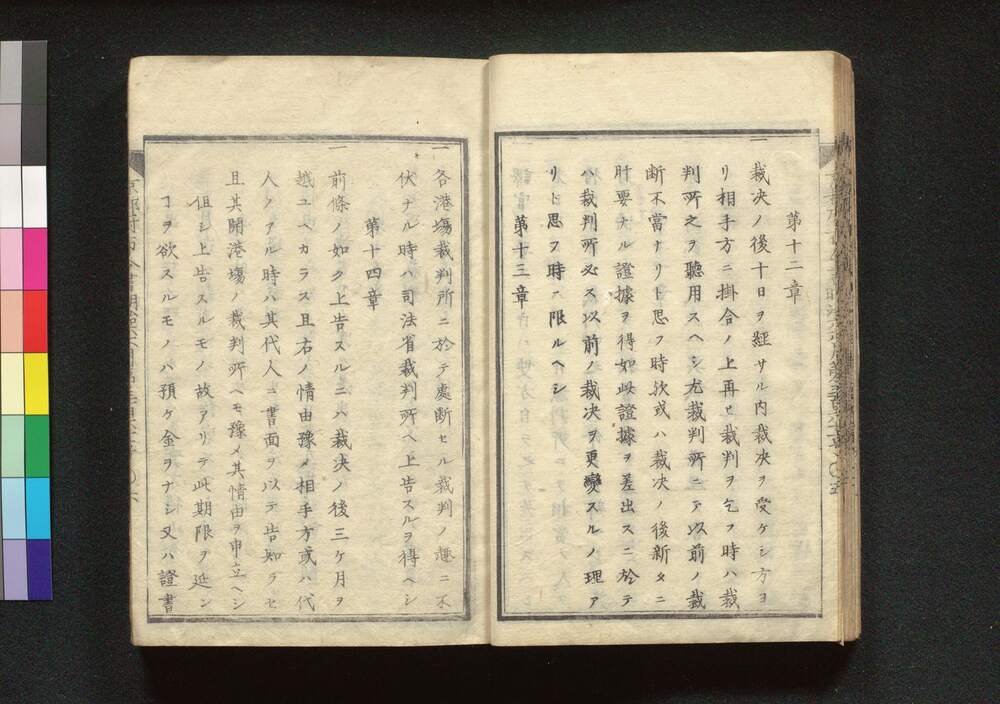 第十二章
一 裁决ノ後十日ヲ経サル内裁决ヲ受ケシ方ヨ
リ相手方ニ掛合ノ上再ヒ裁判ヲ乞フ時ハ裁
判所之ヲ聽用スヘシ尤裁判所ニテ以前ノ裁
断不當ナリト思フ時欤或ハ裁决ノ後新タニ
肝要ナル證據ヲ得如此證據ヲ差出スニ於テ
ハ裁判所必ス以前ノ裁决ヲ更變スルノ理ア
リト思フ時ニ限ルヘシ
第十三章
一 各港塲裁判所ニ於テ處断セル裁判ノ趣ニ不
伏ナル時ハ司法省裁判所ヘ上告スルヲ得ヘシ
第十四章
一 前條ノ如ク上告スルニハ裁决ノ後三ケ月ヲ
越ユヘカラス且右ノ情由豫メ相手方或ハ代
人ノアル時ハ其代人ニ書面ヲ以テ告知ラセ
且其開港塲ノ裁判所ヘモ豫メ其情由ヲ申立ヘシ
伹シ上告スルモノ故アリテ此期限ヲ延ン
ヿヲ欲スルモノハ預ケ金ヲナシ又ハ證書